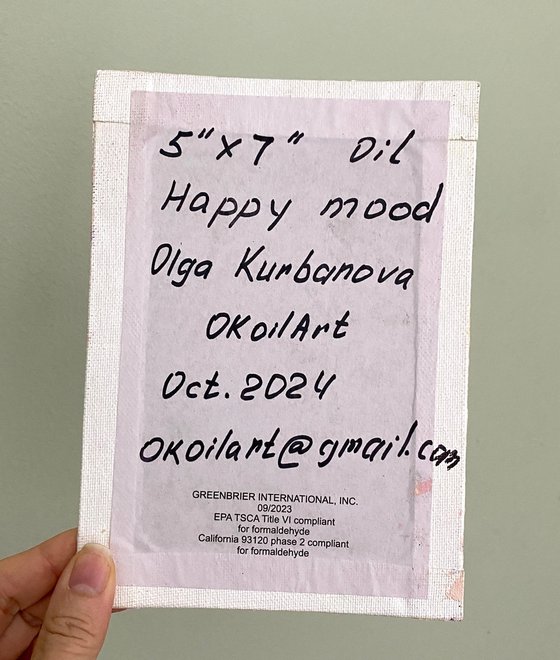 5" x 7" Oil
Happy mood
Olga Kurbanova
OKoilArt
Oct. 2024
OKoilart@gmail.com
GREENBRIER INTERNATIONAL, INC.
09/2023
EPA TSCA Title VI compliant
for formaldehyde
California 93120 phase 2 compliant
for formaldehyde